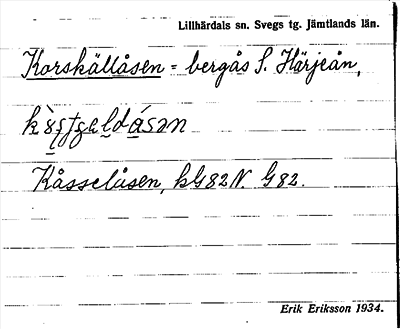 Lillhärdals sn. Svegs tg. Jämtlands län.
Korskällåsen = bergås S. Härjeån,
Kåsselåsen, kG82N. G82.
Erik Eriksson 1934.